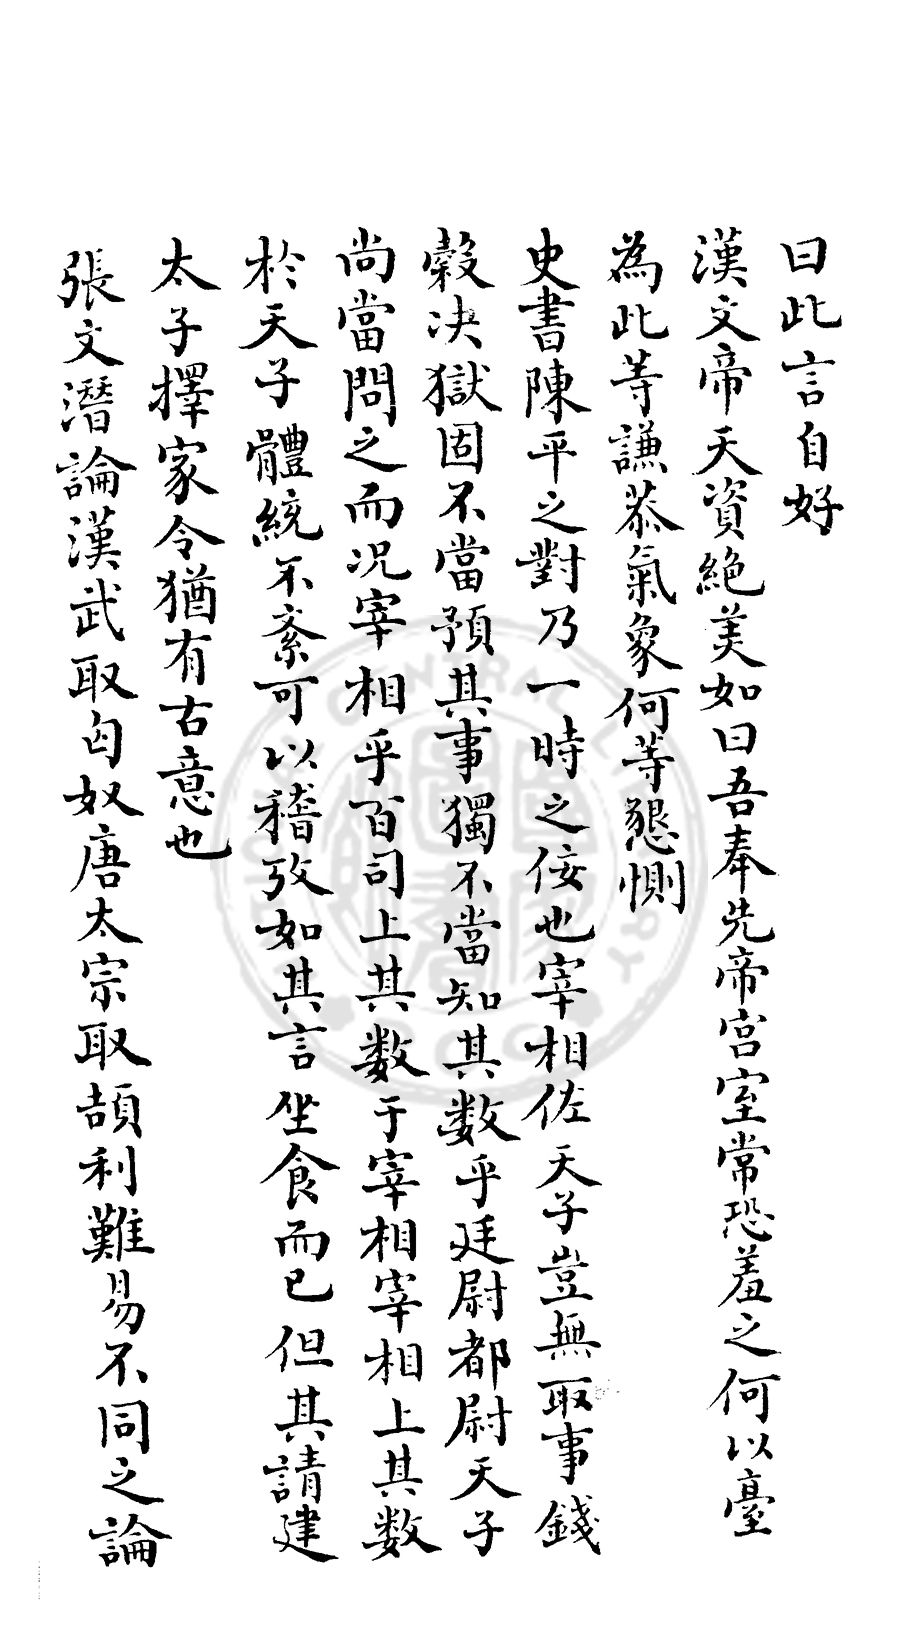 曰此言自好
漢文帝天資絶美如曰吾奉先帝宫室常恐羞之何以臺
為此等謙恭氣象何等懇惻
史書陳平之對乃一時之佞也宰相佐天子豈無取事錢
穀决獄固不當預其事獨不當知其數乎廷尉都尉天子
尚當問之而况宰相乎百司上其数于宰相宰相上其数
於天子體統不紊可以稽攷如其言坐食而已但其請建
太子擇家令猶有古意也
張文潛論漢武取匈奴唐太宗取頡利難易不同之論